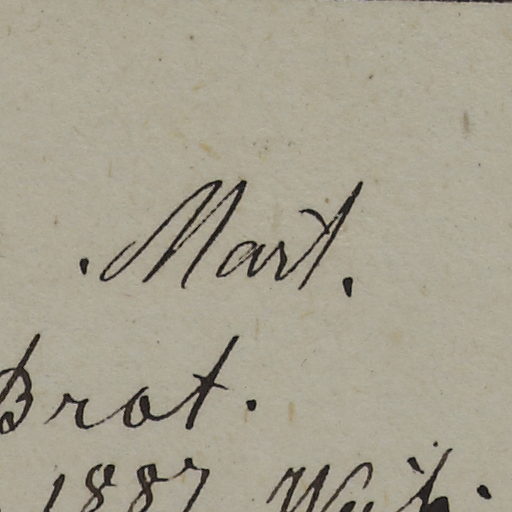 . Mart.
Brot.
1887